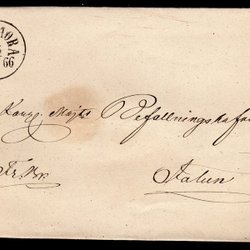 MORA
66
Kongl. Majts Befallningshafva
Fr. Br.
Falun